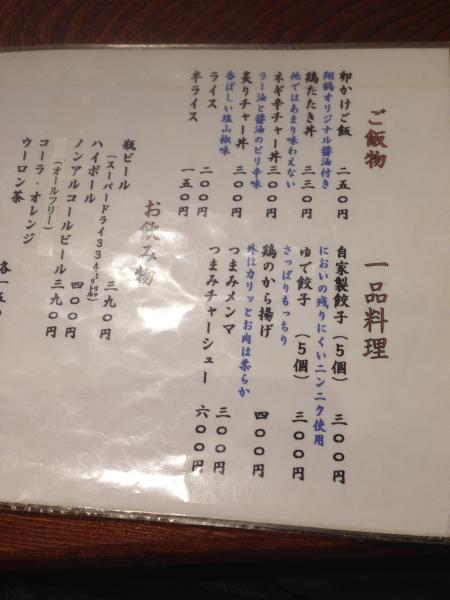 ご飯物
卵かけご飯 二五〇円
翔鶴オリジナル醤油付き
鶏たたき丼 三三〇円
他ではあまり味わえない
ネギ辛チャー丼 三〇〇円
ラー油と醤油のピリ辛味
炙りチャー丼 三〇〇円
香ばしい塩山椒味
ライス 二〇〇円
半ライス 一五〇円
一品料理
自家製餃子(5個) 三〇〇円
においの残りにくいニンニク使用
ゆで餃子 (5個) 三〇〇円
さっぱりもっちり
鶏のから揚げ 四〇〇円
外はカリッとお肉は柔らか
つまみメンマ 三〇〇円
つまみチャーシュー 六〇〇円
お飲み物
瓶ビール
(スーパードライ334ミリリトル) 三九〇円
ハイボール 四〇〇円
ノンアルコールビール 三九〇円
(オールフリー)
コーラ・オレンジ
ウーロン茶 各一五〇